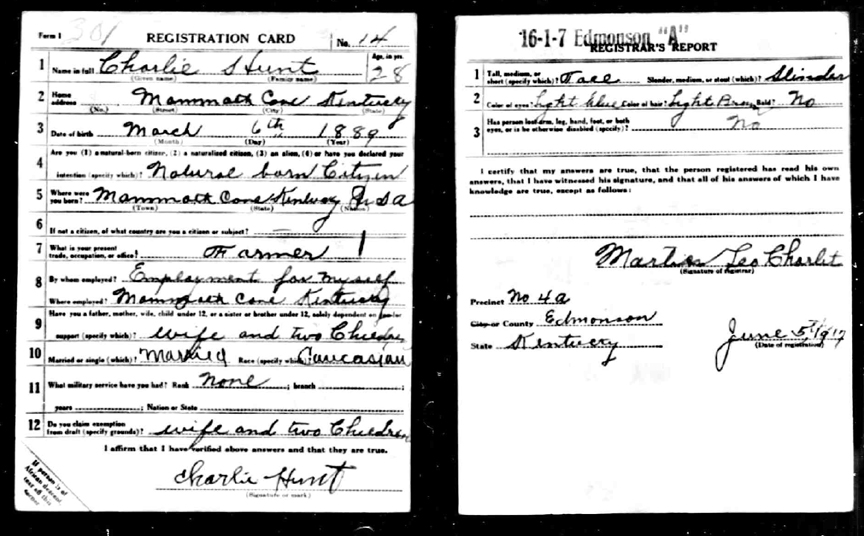 Form 1 301 REGISTRATION CARD No. 14
1 Name in full Charlie S Hunt Age, in yrs. 28
(Given name) (Family name)
2 Home address Mammoth Cave Kentucky
(No.) (Street) (City) (State)
3 Date of birth March 6th 1889
(Month) (Day) (Year)
4 Are you (1) a natural-born citizen, (2) a naturalized citizen, (3) an alien, (4) or have you declared your
intention (specify which)? Natural born Citizen
5 Where were you born? Mammoth Cave Kentucky USA
(Town) (State) (Nation)
6 If not a citizen, of what country are you a citizen or subject?
7 What is your present trade, occupation, or office? Farmer 1
8 By whom employed? Employment for myself
Where employed? Mammoth Cave Kentucky
9 Have you a father, mother, wife, child under 12, or a sister or brother under 12, solely dependent on you for
support (specify which)? wife and two Children
10 Married or single (which)? Married Race (specify which)? Caucasian
11 What military service have you had? Rank None ; branch ;
years ; Nation or State
12 Do you claim exemption from draft (specify grounds)? wife and two Children
I affirm that I have verified above answers and that they are true.
Charlie Hunt
(Signature or mark)
If person is of
African descent,
tear off this
corner
16-1-7 Edmonson "A"
REGISTRAR'S REPORT
1 Tall, medium, or short (specify which)? Tall Slender, medium, or stout (which)? Slinder
2 Color of eyes? Light blue Color of hair? Light Brown Bald? No
3 Has person lost arm, leg, hand, foot, or both eyes, or is he otherwise disabled (specify)? No
I certify that my answers are true, that the person registered has read his own
answers, that I have witnessed his signature, and that all of his answers of which I have
knowledge are true, except as follows:
Leo
(Signature of registrar)
Precinct No 4a
City or County Edmonson
State Kentucky June 5th 1917
(Date of registration)